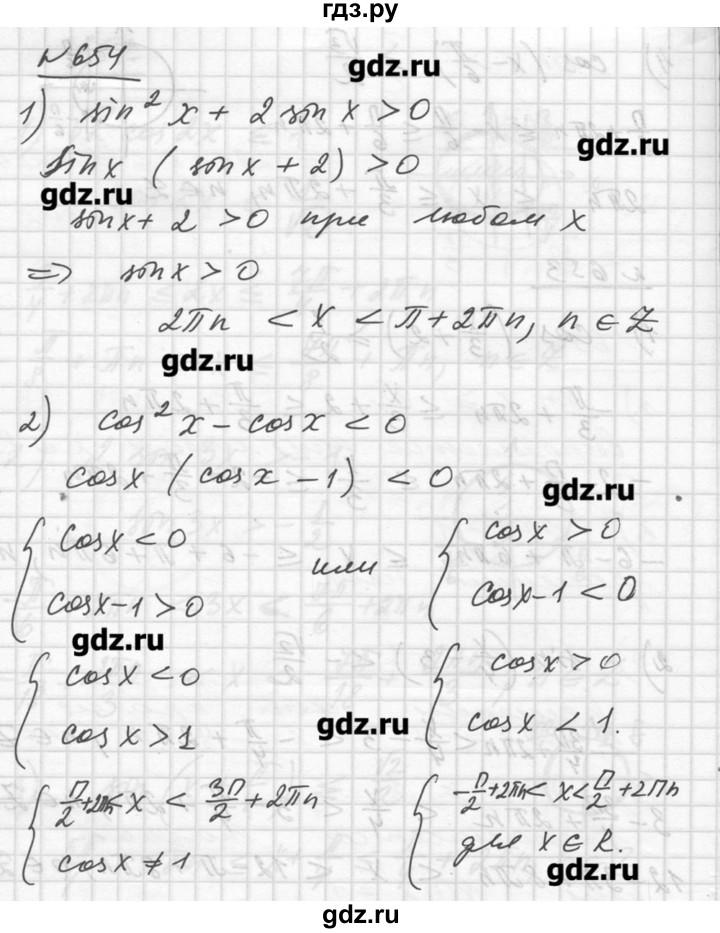 гдз.ру
№654
gdz.ru
1) sin² x + 2 sin x > 0
gdz.ru
sin x ( sin x + 2) > 0
gdz.ru
sin x + 2 > 0 при любом x
⇒ sin x > 0
2πn < x < π + 2πn, n ∈ Z
gdz.ru
2) cos² x - cos x < 0
cos x (cos x - 1) < 0
gdz.ru
{ cos x < 0 или { cos x > 0
{ cos x - 1 > 0 { cos x - 1 < 0
gdz.ru
{ cos x < 0 { cos x > 0
gdz.ru
{ cos x > 1 { cos x < 1.
{ π/2 + 2πn < x < 3π/2 + 2πn { -π/2 + 2πn < x < π/2 + 2πn
{ cos x ≠ 1 { для x ∈ R.
gdz.ru
gdz.ru